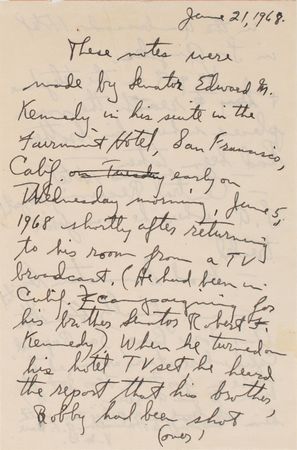 June 21, 1968.
These notes were
made by Senator Edward M.
Kennedy in his suite in the
Fairmont Hotel, San Francisco,
Calif. on Tuesday early on
Wednesday morning, June 5,
1968 shortly after returning
to his room from a TV
broadcast. (He had been in
Calif. campaigning for
his brother Senator Robert F.
Kennedy) When he turned on
his hotel TV set, he heard
the report that his brother,
Bobby had been shot
(over)